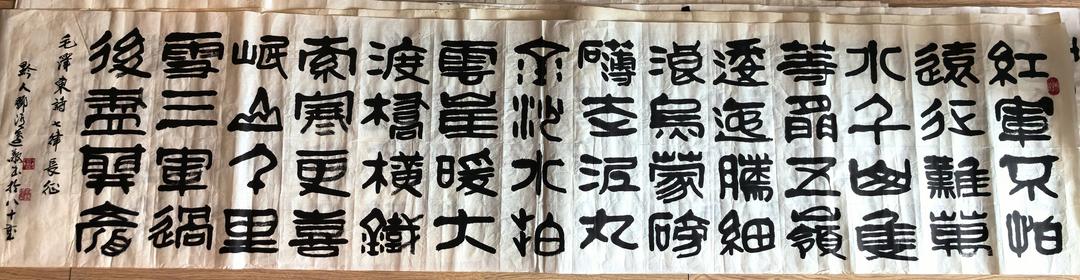 紅軍不怕
遠征難萬
水千山隻
等閒五嶺
逶迤騰細
浪烏蒙磅
礴走泥丸
金沙水拍
雲崖暖大
渡橋橫鐵
索寒更喜
岷山千里
雪三軍過
後盡開顏
毛澤東詩七律長征
黔人八十